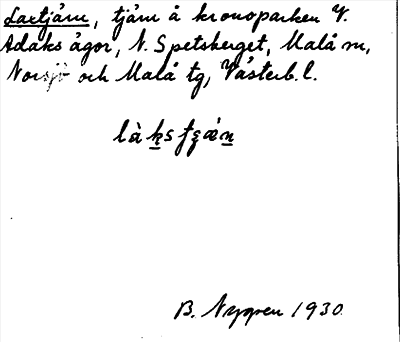 Laxtjärn, tjärn å kronoparken V.
Adaks ägor, N. Spetsberget, Malå sn,
Norsjö och Malå tg, Västerb. l.
B. Nygren 1930